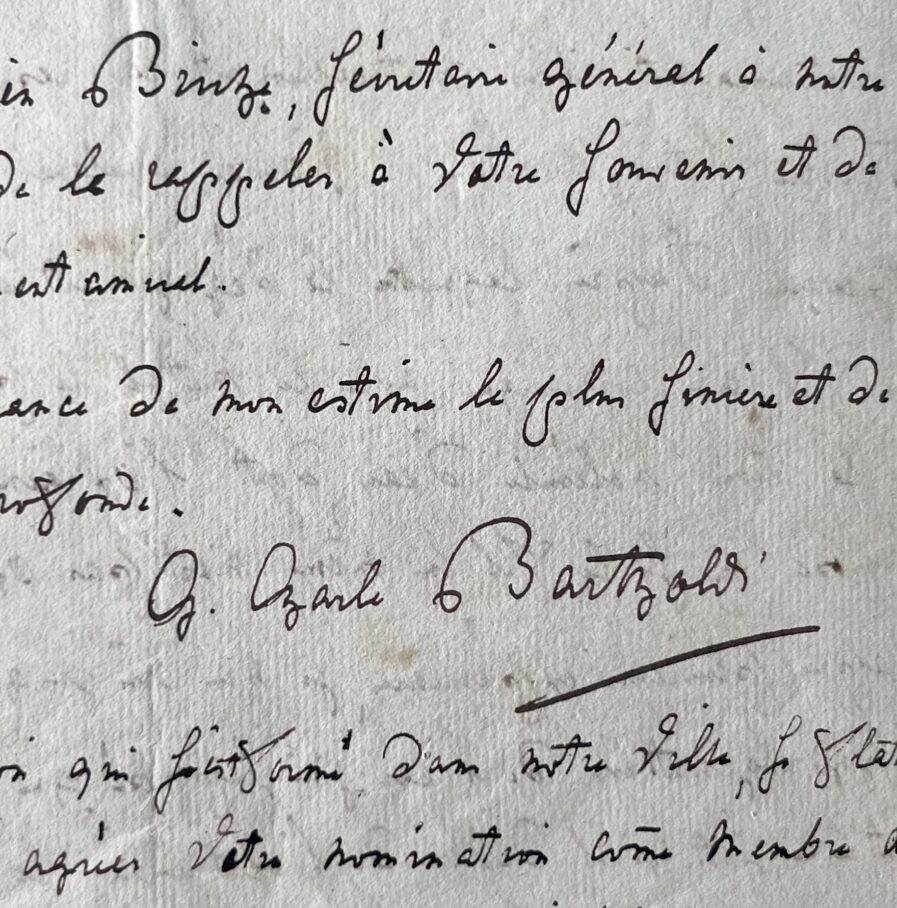 in Bintz, sécrétaire général à notre
de le rappeler à votre souvenir et de
ent amical.
ance de mon estime la plus sincère et de
rofonde.
G. Charle Bartholdi
on qui s'est formé dans notre ville, se flat
agréer votre nomination com̄e membre